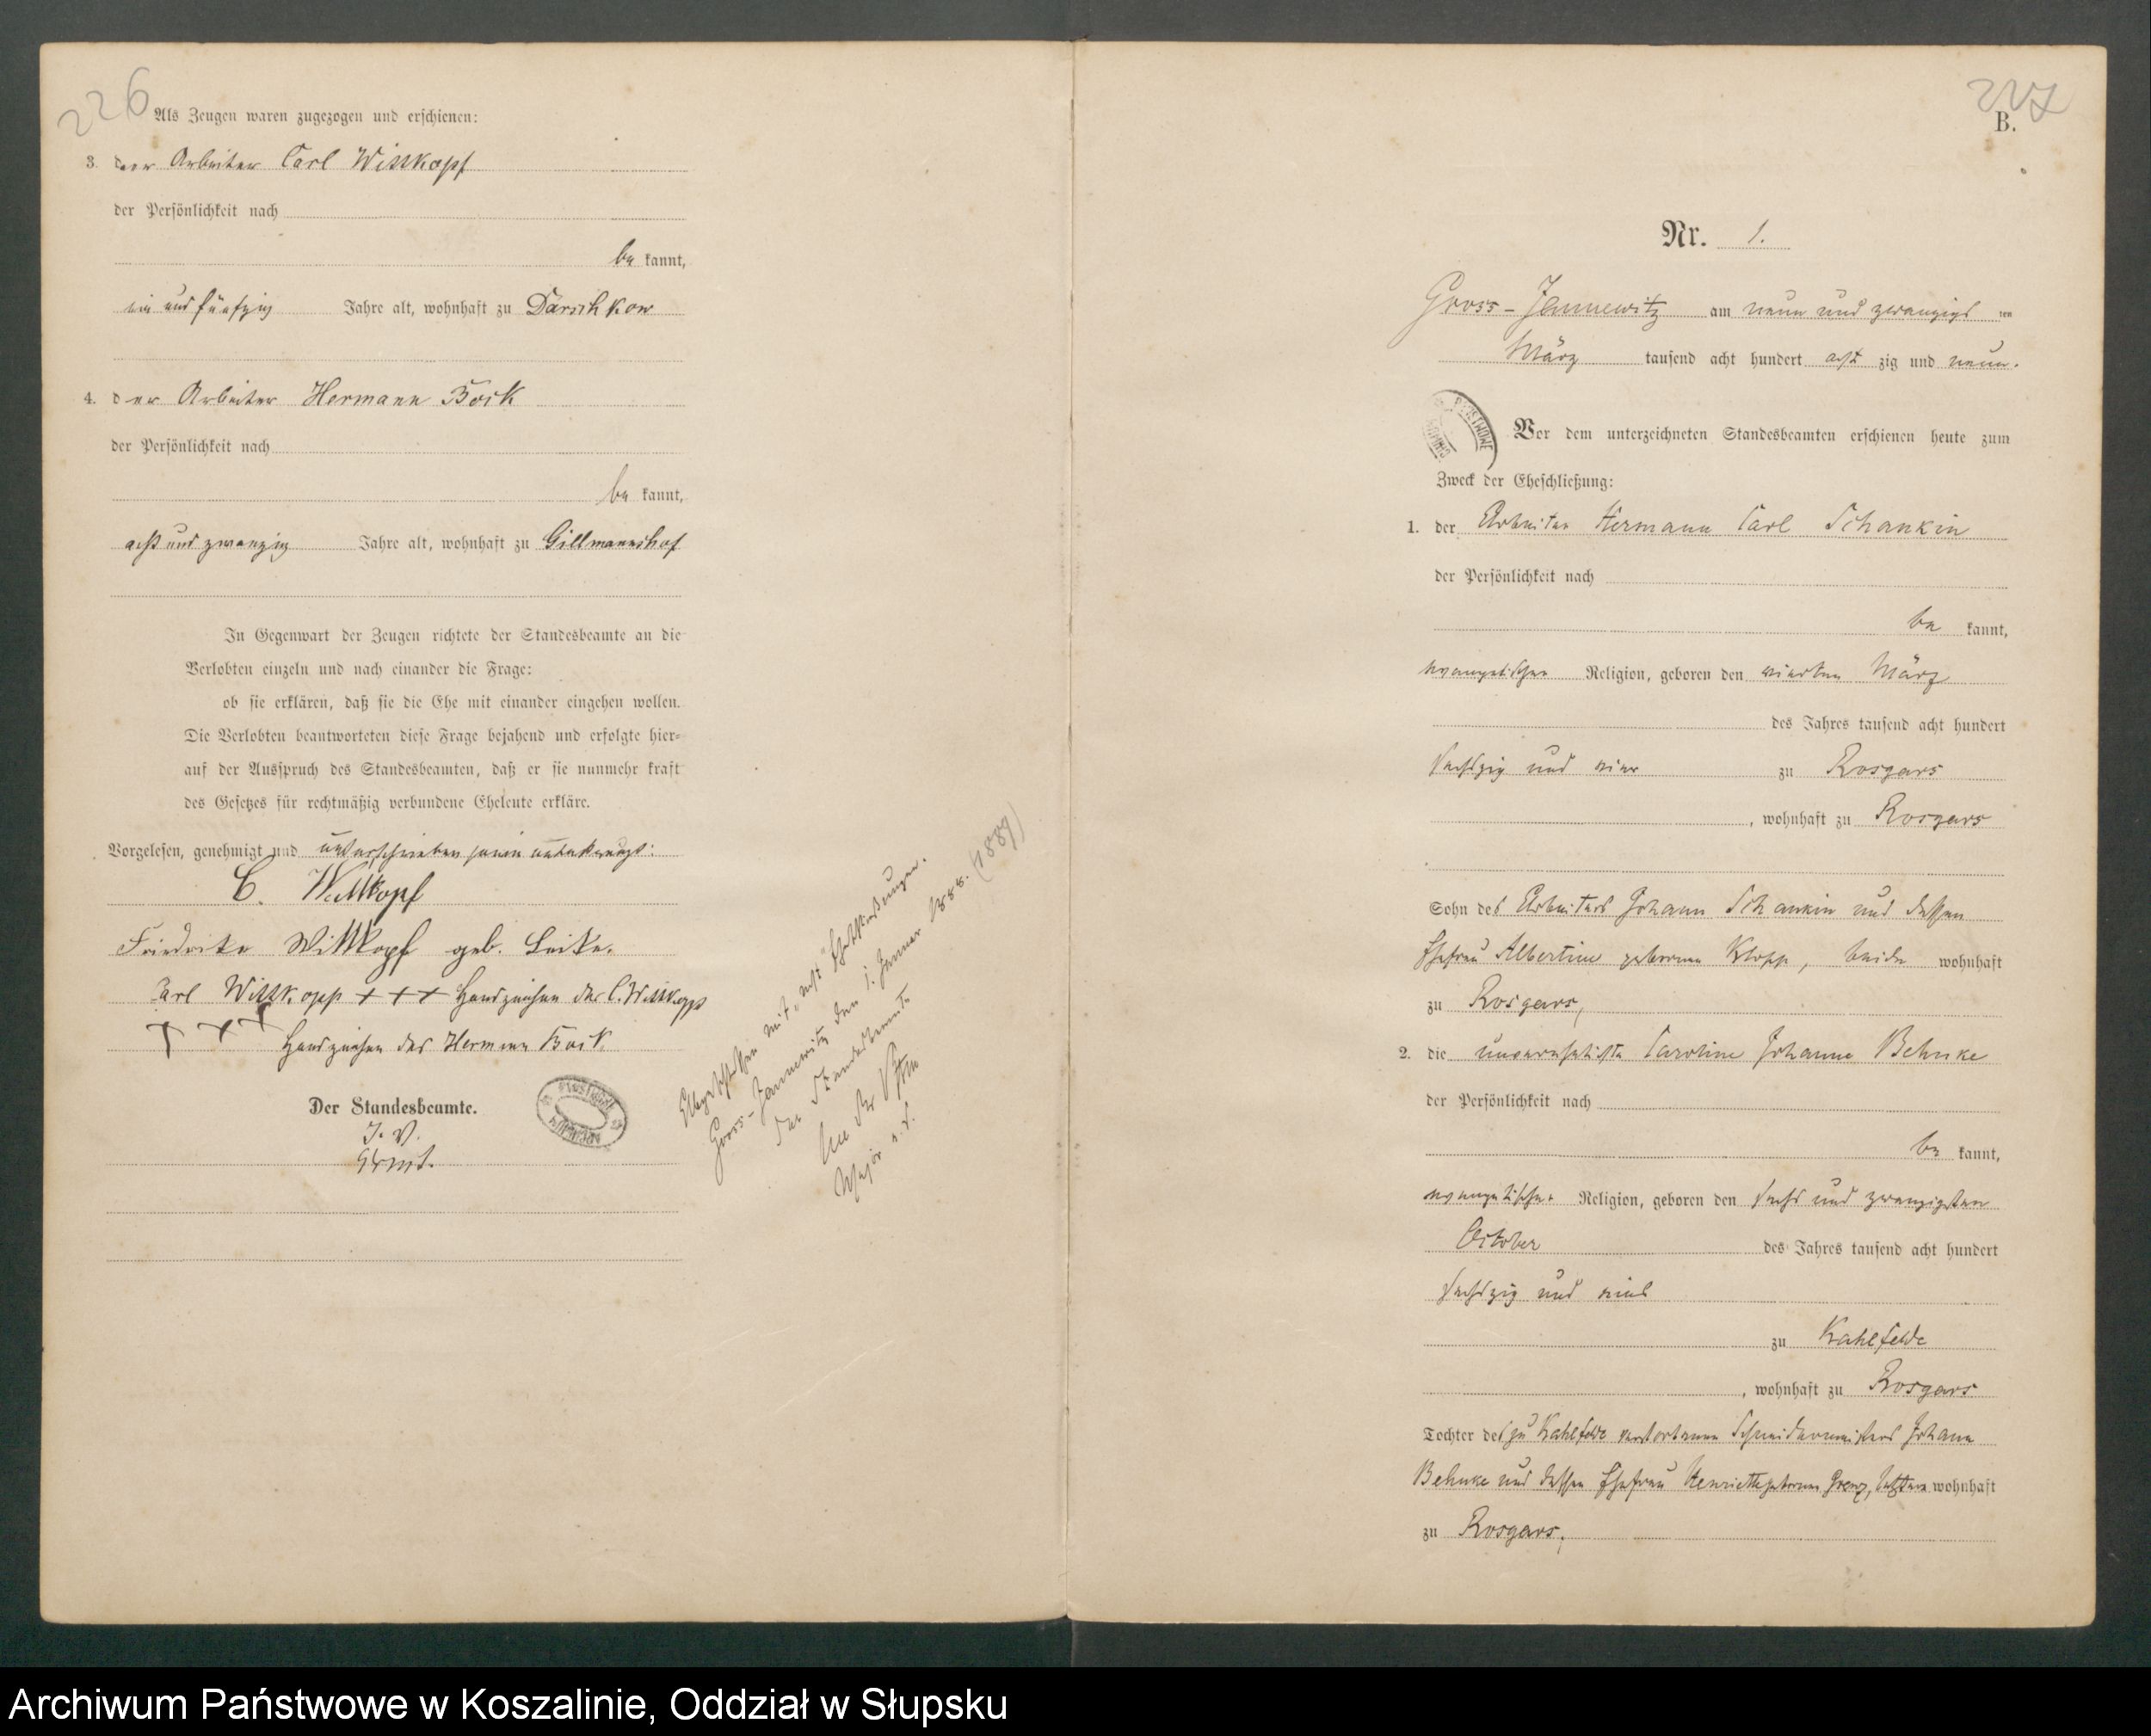 226
Als Zeugen waren zugezogen und erschienen:
3. der Arbeiter Carl Wittkopf
der Persönlichkeit nach
be kannt,
ein und fünfzig Jahre alt, wohnhaft zu Darschkow
4. der Arbeiter Hermann Bock
der Persönlichkeit nach
be kannt,
acht und zwanzig Jahre alt, wohnhaft zu Gillmannshof
In Gegenwart der Zeugen richtete der Standesbeamte an die
Verlobten einzeln und nach einander die Frage:
ob sie erklären, daß sie die Ehe mit einander eingehen wollen.
Die Verlobten beantworteten diese Frage bejahend und erfolgte hier-
auf der Ausspruch des Standesbeamten, daß er sie nunmehr kraft
des Gesetzes für rechtmäßig verbundene Eheleute erkläre.
Vorgelesen, genehmigt und unterschrieben sowie unterkreuzt:
C. Wittkopf
Friedrike Wittkopf geb.
Carl Wittkopp + + + Handzeichen des C. Wittkopp
+ + + Handzeichen des Hermann Bock
Der Standesbeamte.
I. V.
Abgeschlossen mit "acht" Eheschließungen.
Gross-Jannewitz den 1. Januar 1888. (1889)
Der Standesbeamte
Major a. D.
227
B.
Nr. 1.
Gross-Jannewitz am neun und zwanzigs ten
März tausend acht hundert acht zig und neun.
Vor dem unterzeichneten Standesbeamten erschienen heute zum
Zweck der Eheschließung:
1. der Arbeiter Hermann Carl Schankin
der Persönlichkeit nach
be kannt,
evangelischer Religion, geboren den vierten März
des Jahres tausend acht hundert
sechszig und vier zu Rosgars
, wohnhaft zu Rosgars
Sohn des Arbeiters Johann Schankin und dessen
Ehefrau Albertine geborenen Klopp, beide wohnhaft
zu Rosgars,
2. die unverehelichte Caroline Johanne Behnke
der Persönlichkeit nach
be kannt,
evangelischer Religion, geboren den sechs und zwanzigsten
October des Jahres tausend acht hundert
sechszig und eins
zu Kahlfelde
, wohnhaft zu Rosgars
Tochter des zu Kahlfelde verstorbenen Schneidermeisters Johann
Behnke und dessen Ehefrau Henriette geborenen Grenz, letztere wohnhaft
zu Rosgars,
Archiwum Państwowe w Koszalinie, Oddział w Słupsku